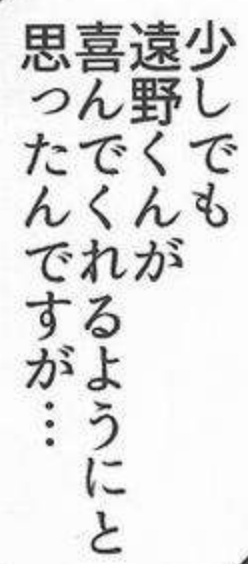 少しでも
遠野くんが
喜んでくれるようにと
思ったんですが…